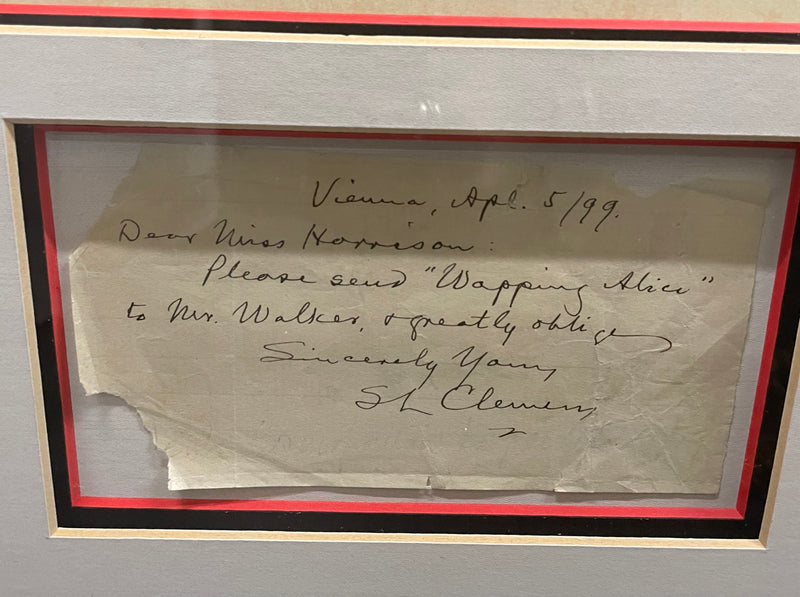 Vienna, Apl. 5/99.
Dear Miss Harrison:
Please send "Wapping Alice"
to Mr. Walker, & greatly oblige
Sincerely Yours
SL Clemens